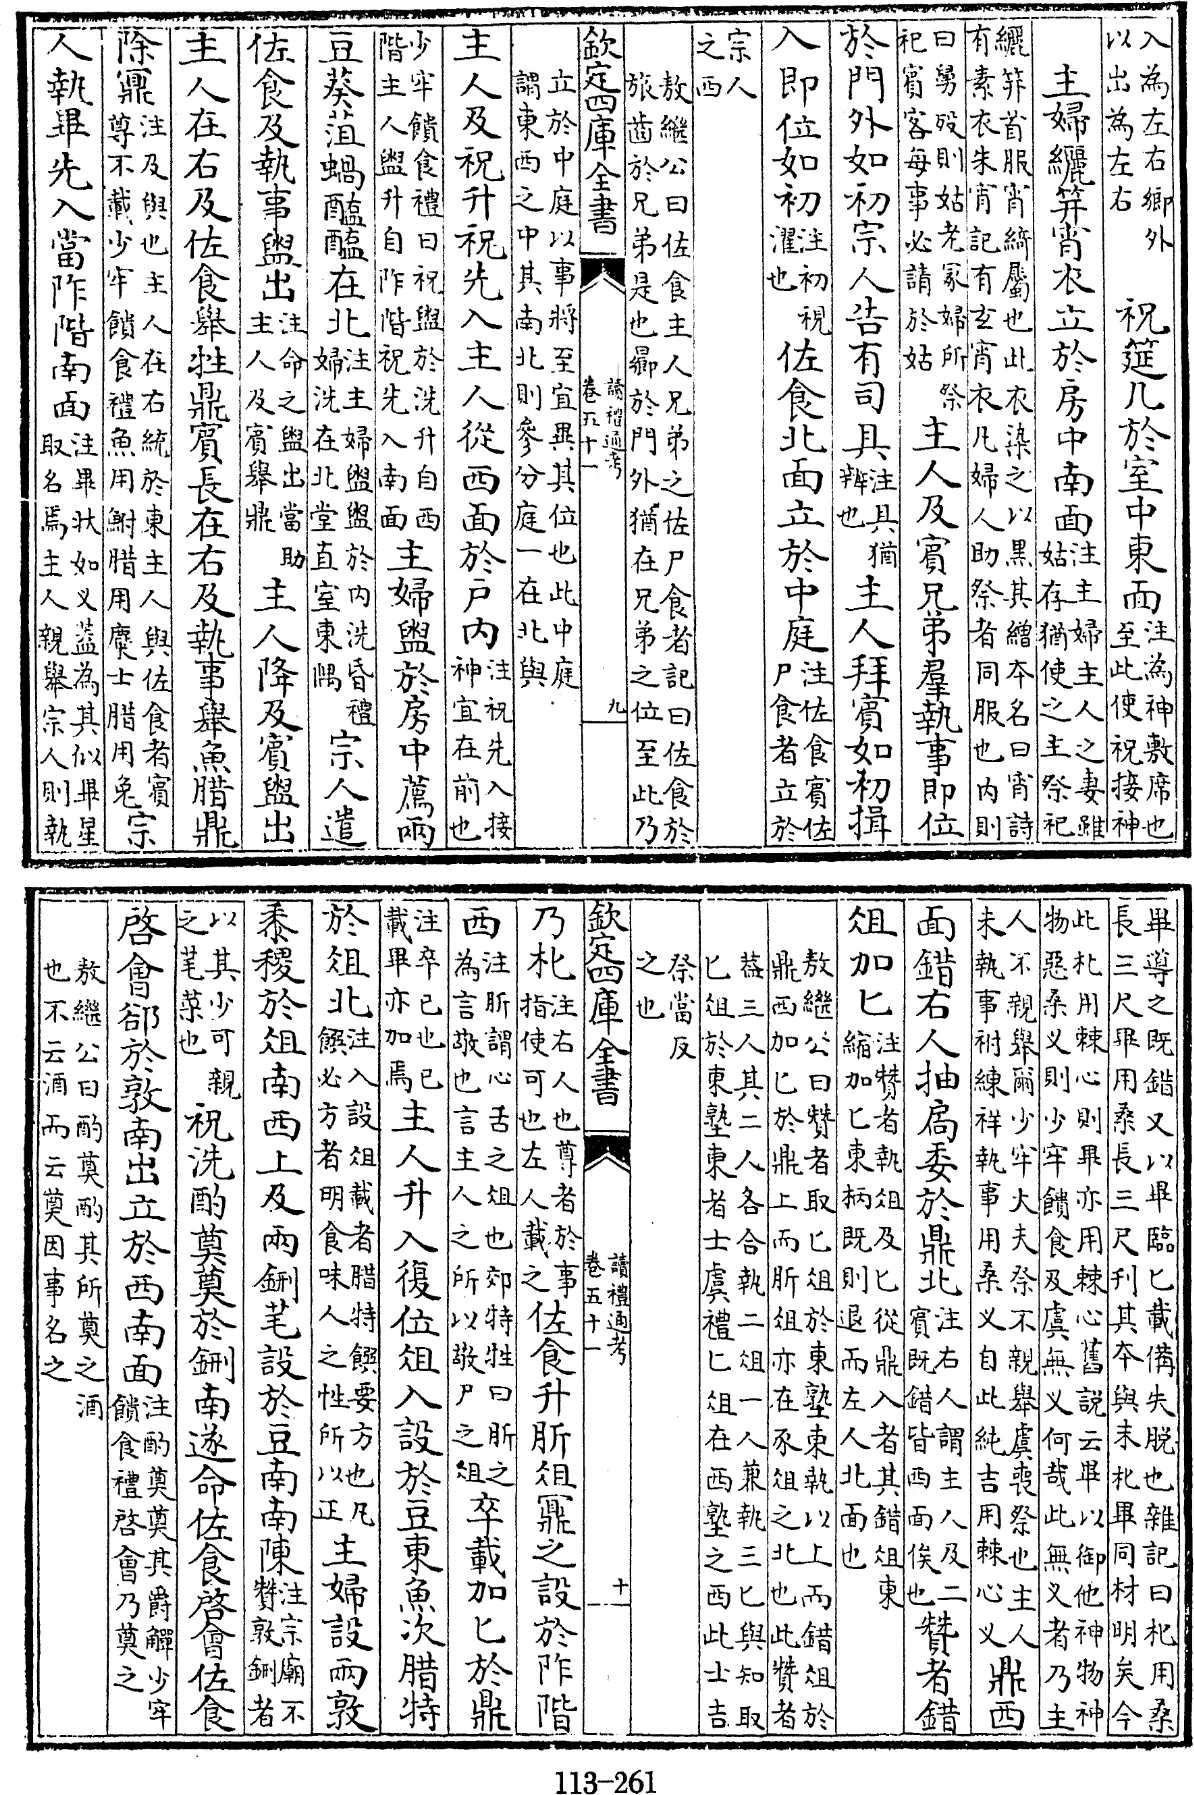 入為左右鄉外以出為左右祝筵几於室中東面注為神敷席也至此使祝接神
主婦纚笄宵衣立於房中南面注主婦主人之妻雖姑存猶使之主祭祀
纚笄首服宵綺屬也此衣染之以黑其繒本名曰宵詩有素衣朱宵記有玄宵衣凡婦人助祭者同服也内則
曰舅歿則姑老冢婦所祭祀賔客每事必請於姑主人及賔兄弟羣執事即位
於門外如初宗人告有司具注具猶辨也主人拜賔如初揖
入即位如初注初視濯也佐食北面立於中庭注佐食賔佐尸食者立於
宗人之西
敖繼公曰佐食主人兄弟之佐尸食者記曰佐食於旅齒於兄弟是也曏於門外猶在兄弟之位至此乃
欽定四庫全書 讀禮通考卷五十一 九
立於中庭以事將至宜異其位也此中庭謂東西之中其南北則參分庭一在北與
主人及祝升祝先入主人從西面於户内注祝先入接神宜在前也
少牢饋食禮曰祝盥於洗升自西階主人盥升自阼階祝先入南面主婦盥於房中薦兩
豆葵菹蝸醢醢在北注主婦盥盥於内洗昏禮婦洗在北堂直室東隅宗人遣
佐食及執事盥出注命之盥出當助主人及賔舉鼎主人降及賔盥出
主人在右及佐食舉牲鼎賔長在右及執事舉魚腊鼎
除鼏注及與也主人在右統於東主人與佐食者賔尊不載少牢饋食禮魚用鮒腊用麋士腊用兔宗
人執畢先入當阼階南面注畢狀如义蓋為其似畢星取名焉主人親舉宗人則執
畢導之既錯又以畢臨匕載備失脱也雜記曰朼用桑長三尺畢用桑長三尺刋其本與末朼畢同材明矣今
此朼用棘心則畢亦用棘心舊説云畢以御他神物神物惡桑义則少牢饋食及虞無义何哉此無义者乃主
人不親舉爾少牢大夫祭不親舉虞喪祭也主人未執事祔練祥執事用桑义自此純吉用棘心义鼎西
面錯右人抽扃委於鼎北注右人謂主人及二賔既錯皆西面俟也贊者錯
俎加匕注贊者執俎及匕從鼎入者其錯俎東縮加匕東柄既則退而左人北面也
敖繼公曰贊者取匕俎於東塾東執以上而錯俎於鼎西加匕於鼎上而肵俎亦在豕俎之北也此贊者
葢三人其二人各合執二俎一人兼執三匕與知取匕俎於東塾東者士虞禮匕俎在西塾之西此士吉
祭當反之也
欽定四庫全書 讀禮通考卷五十一 十
乃朼注右人也尊者於事指使可也左人載之佐食升肵俎鼏之設於阼階
西注肵謂心舌之俎也郊特牲曰肵之為言敬也言主人之所以敬尸之俎卒載加匕於鼎
注卒已也已載畢亦加焉主人升入復位俎入設於豆東魚次腊特
於俎北注入設俎載者腊特饌要方也凡饌必方者明食味人之性所以正主婦設兩敦
黍稷於俎南西上及兩鉶芼設於豆南南陳注宗廟不贊敦鉶者
以其少可親之芼菜也祝洗酌奠奠於鉶南遂命佐食啓會佐食
啓會郤於敦南出立於西南面注酌奠奠其爵觶少牢饋食禮啓會乃奠之
敖繼公曰酌奠酌其所奠之酒也不云酒而云奠因事名之
113-261